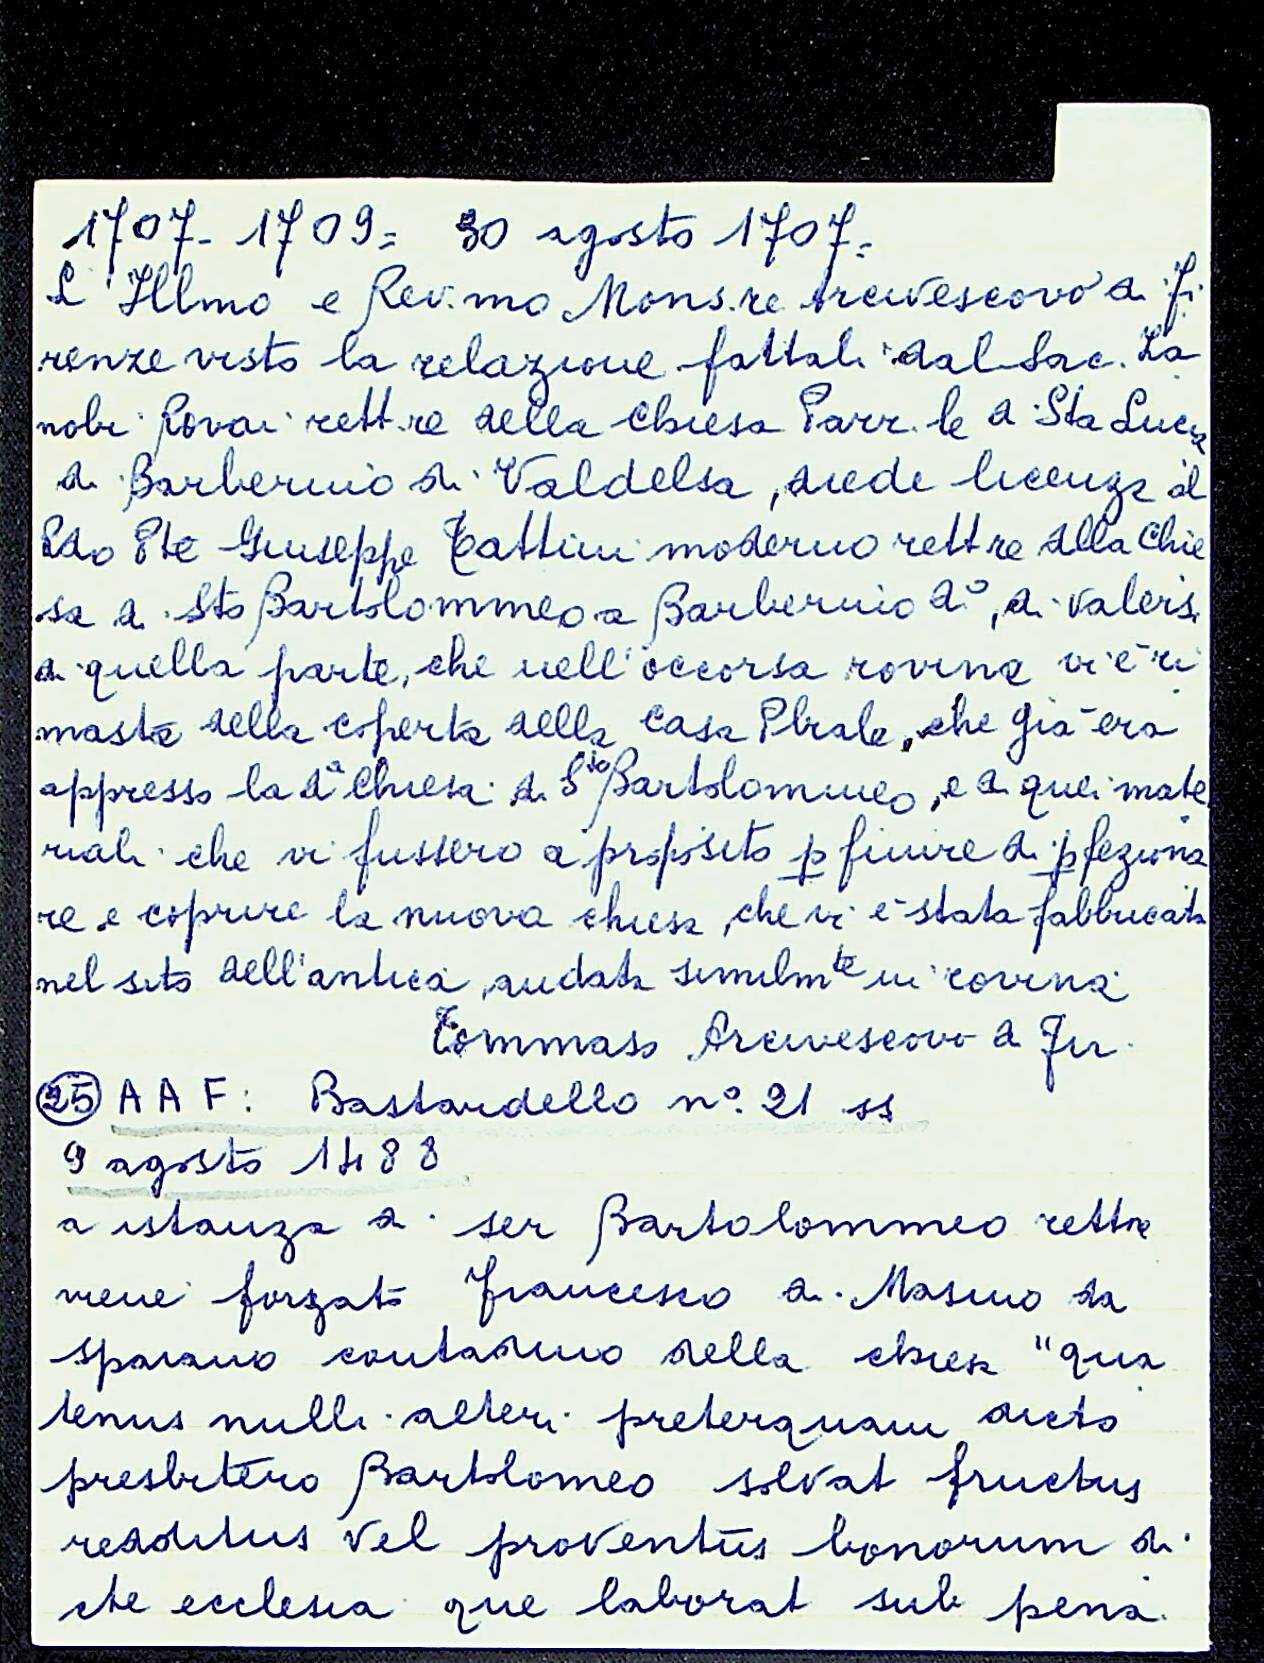 1707- 1709= 30 agosto 1707=
L'Illmo e Rev.mo Mons.re Arcivescovo di Fi
renze visto la relazione fattali dal Sac. Za
nobi Rovai rett.re della Chiesa Parr.le di Sta Lucia
di Barberino di Valdelsa, diede licenza al
Pdo Pte Giuseppe Tattini moderno rettre della Chie
sa di Sto Bartolommeo a Barberino do, di valersi
di quella parte, che nell'occorsa rovina vi è ri
masta della coperta della casa Plrale, che già era
appresso la da Chiesa di Sto Bartolommeo, e di quei mate
riali che vi fussero a proposito p finire di pfeziona
re e coprire la nuova chiesa, che vi è stata fabbricata
nel sito dell'antica, andata similmte in rovina
Tommaso Arcivescovo di Fir.
25 AAF: Bastardello n°. 21 ss
9 agosto 1488
a istanza di ser Bartolommeo rettre
viene forzato Francesco di Masino da
spaiano contadino della chiesa "qua
tenus nulli alteri preterquam dicto
presbitero Bartolomeo solvat fructus
redditus vel proventus bonorum di
cte ecclesia que laborat sub pena